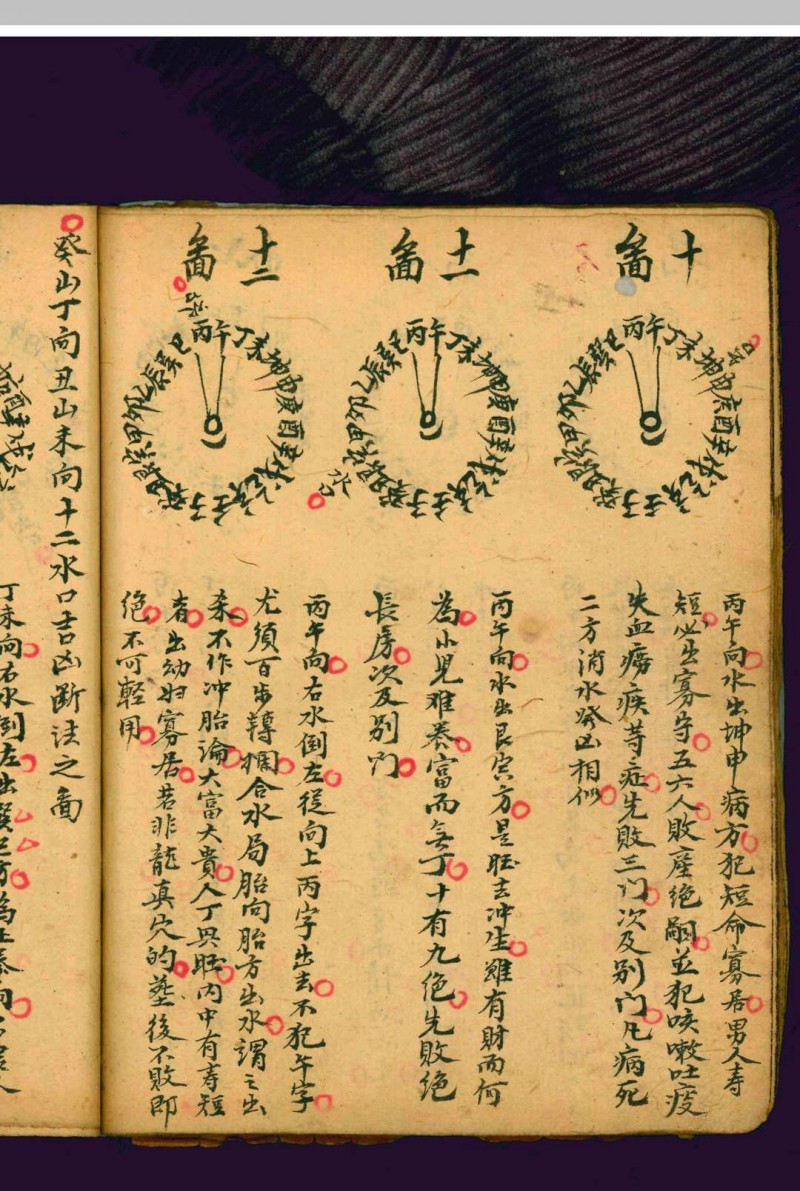 十圖
丙午 丁未 坤申 庚酉 辛戌 乾亥 壬子 癸丑 艮寅 甲卯 乙辰 巽巳
水口
丙午向水出坤申病方犯短命寡居男人寿
短必出寡母五六人敗産絶嗣並犯咳嗽吐痰
失血癆疾等症先敗三门次及别门凡病死
二方消水断凶相似
十一圖
丙午 丁未 坤申 庚酉 辛戌 乾亥 壬子 癸丑 艮寅 甲卯 乙辰 巽巳
水口
丙午向水出艮寅方是旺去冲生雖有財而何
為小児难养富而無丁十有九绝先敗绝
長房次及别门
十二圖
丙午 丁未 坤申 庚酉 辛戌 乾亥 壬子 癸丑 艮寅 甲卯 乙辰 巽巳
丙午向右水倒左從向上丙字出去不犯午字
尤須百步轉攔合水局胎向胎方出水謂之出
杀不作冲胎論大富大貴人丁興旺内中有寿短
者出幼妇寡居若非龍真穴的塟後不敗即
绝不可輕用
癸山丁向丑山未向十二水口吉凶断法之圖
丁未向右水倒左出巽巳方為